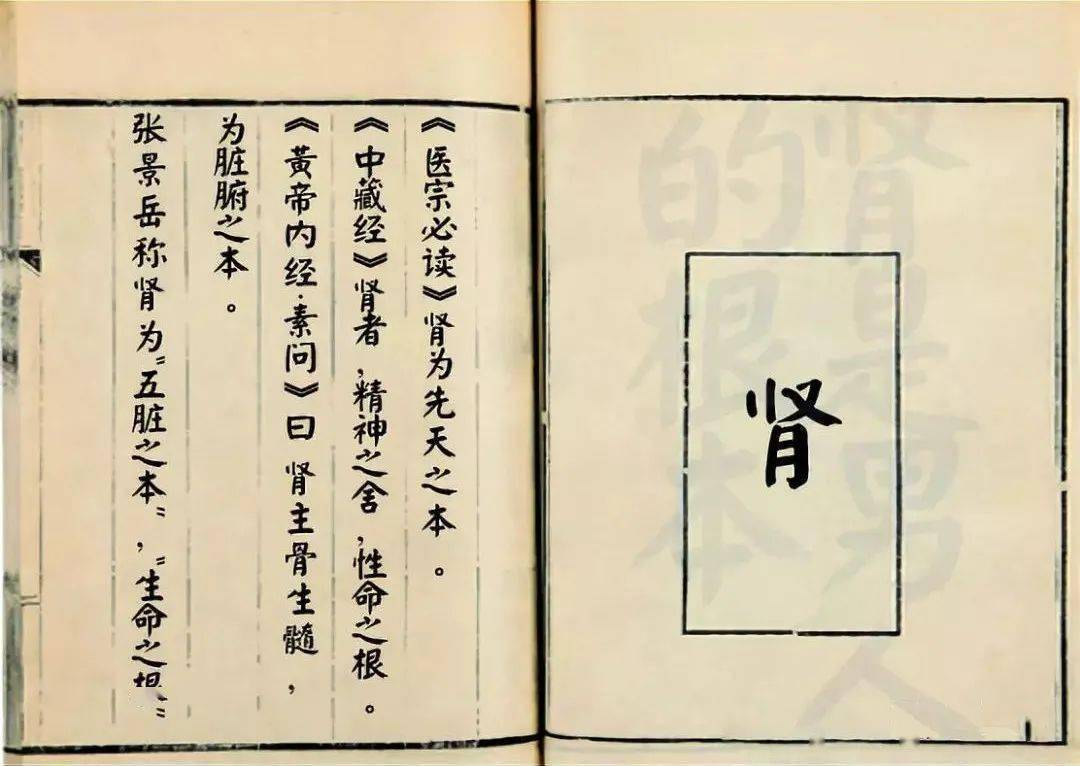 肾是男人
的根本
肾
《医宗必读》肾为先天之本。
《中藏经》肾者,精神之舍,性命之根。
《黄帝内经·素问》曰肾主骨生髓,
为脏腑之本。
张景岳称肾为“五脏之本”,“生命之根”